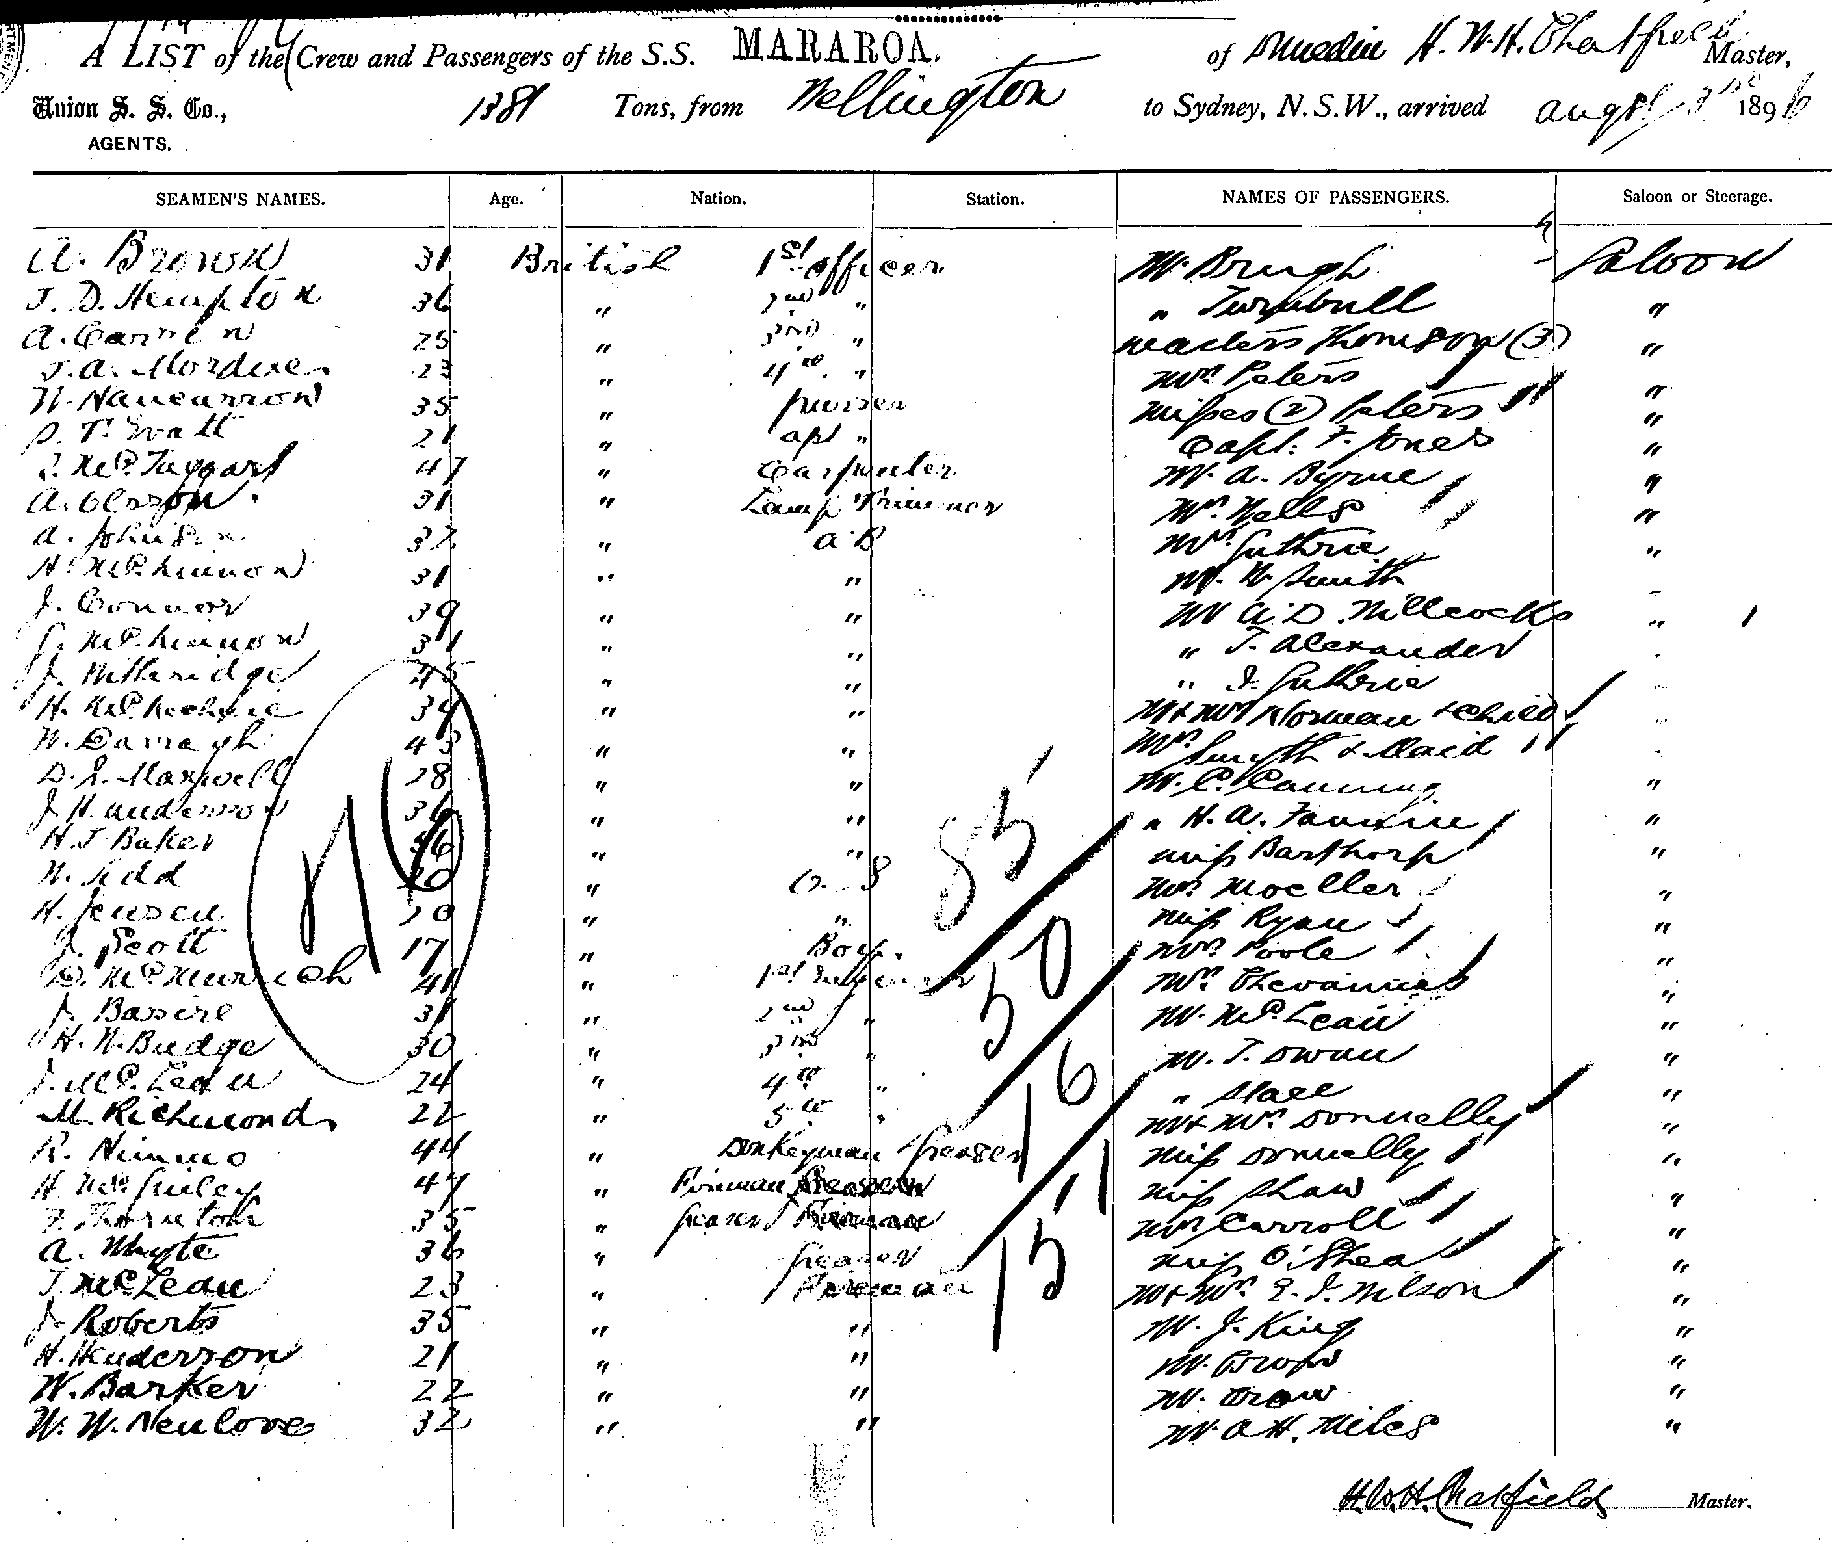 A LIST of the Crew and Passengers of the S.S. MARAROA. of Dunedin H. W. H. Chatfield Master,
Union S. S. Co., 1381 Tons, from Wellington to Sydney, N.S.W., arrived Augst 3rd 1896
AGENTS.
SEAMEN'S NAMES. Age. Nation. Station. NAMES OF PASSENGERS. Saloon or Steerage.
A. Brown 31 British 1st Officer Mr. Brugh Saloon
T. D. Hempton 36 " 2nd " " Turnbull "
A. 25 " 3rd " Masters Thomson (3) "
23 " 4th " Mrs Peters "
35 " purser Misses (2) Peters "
Watt 21 " " Capt. F. Jones "
McTaggart 47 " Carpenter Mr. A. Byrne "
A. Olsson 31 " Lamp Trimmer Mr. Wells "
A. Johnson 32 " A B Mrs Guthrie "
McKinnon 31 " " Mr. W. Smith
J. Connor 39 " " Mr A. D. Willcocks "
McKinnon 31 " " " T. Alexander
J. Witheridge 45 " " " Guthrie
H. McKechnie 39 " " Mr & Mrs Norman & Child
W. Darragh 43 " " Mrs Smyth & Maid
D. J. Maxwell 28 " " Mr. C. Canning "
J. H. Anderson 36 " " " H. A. "
H. J. Baker 36 " " Miss Barthorp "
W. Kidd 20 " O. S Mrs Moeller "
H. Jensen 20 " " Miss Ryan "
J. Scott 17 " Boy. Mrs Poole "
D. McMurrich 41 " 1st Engineer Mrs "
J. Basire 31 " 2nd " Mr. McLean "
H. W. Budge 30 " 3rd " Mr. T. Swan "
J. McLean 24 " 4th " " "
M. Richmond 22 " 5th " Mr & Mrs Donnelly "
R. Nimmo 44 " Donkeyman Greaser Miss Donnelly "
H. McGinley 47 " Fireman Miss Shaw "
Thornton 35 " Greaser Mrs Carroll "
A. Whyte 36 " Greaser Miss O'Shea "
T. McLean 23 " Fireman Mr & Mrs E. J. Wilson "
J. Roberts 35 " " Mr. J. King "
H. Henderson 21 " " Mr. "
W. Barker 22 " " Mr. "
W. W. Newlove 32 " " Mr. A H. Miles "
85
50
16
151
H. W. H. Chatfield Master.